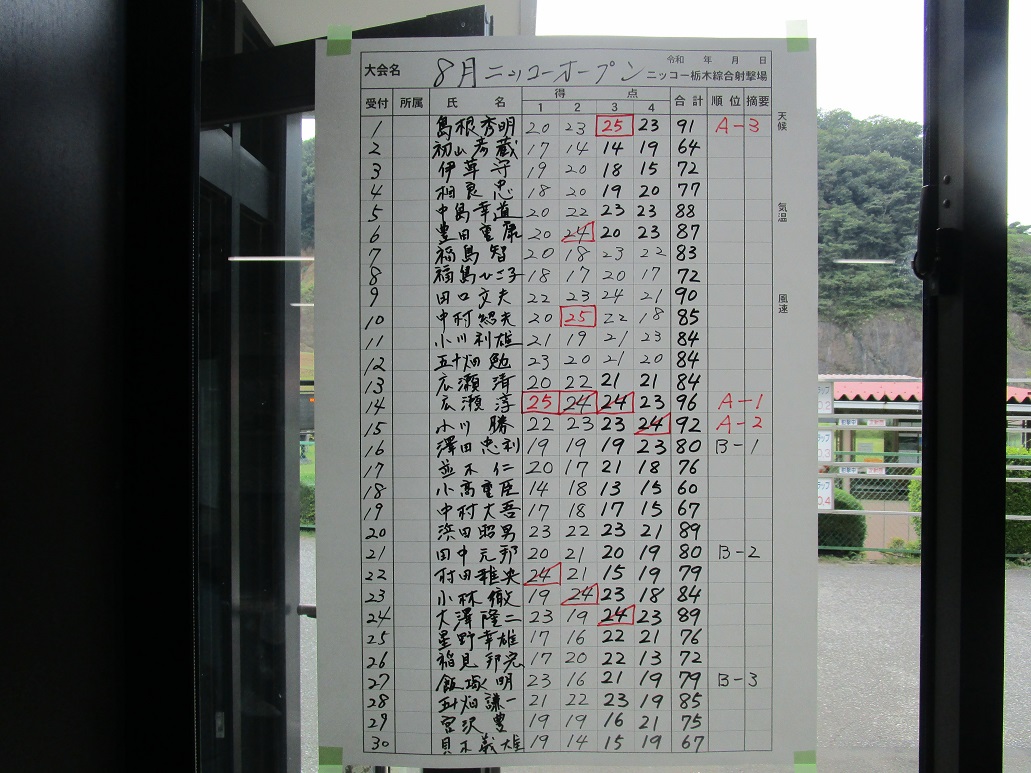 令和 年 月 日
大会名 8月ニッコーオープン ニッコー栃木綜合射撃場
受付 所属 氏名 得点 合計 順位 摘要
1 2 3 4
天候
気温
風速
1 島根秀明 20 23 25 23 91 A-3
2 初山彦蔵 17 14 14 19 64
3 伊草守 19 20 18 15 72
4 相良忠 18 20 19 20 77
5 中島幸道 20 22 23 23 88
6 豊田重康 20 24 20 23 87
7 福島智 20 18 23 22 83
8 福島ひこ子 18 17 20 17 72
9 田口文夫 22 23 24 21 90
10 中村紹夫 20 25 22 18 85
11 小川利雄 21 19 21 23 84
12 五十畑勉 23 20 21 20 84
13 広瀬清 20 22 21 21 84
14 広瀬淳 25 24 24 23 96 A-1
15 小川勝 22 23 23 24 92 A-2
16 澤田忠利 19 19 19 23 80 B-1
17 並木仁 20 17 21 18 76
18 小高重臣 14 18 13 15 60
19 中村大吾 17 18 17 15 67
20 浜田昭男 23 22 23 21 89
21 田中元邦 20 21 20 19 80 B-2
22 村田雅央 24 21 15 19 79
23 小林徹 19 24 23 18 84
24 大澤隆二 23 19 24 23 89
25 星野幸雄 17 16 22 21 76
26 稲見邦宏 17 20 22 13 72
27 飯塚明 23 16 21 19 79 B-3
28 五十畑謙一 21 22 23 19 85
29 宮沢豊 19 19 16 21 75
30 貝木義雄 19 14 15 19 67